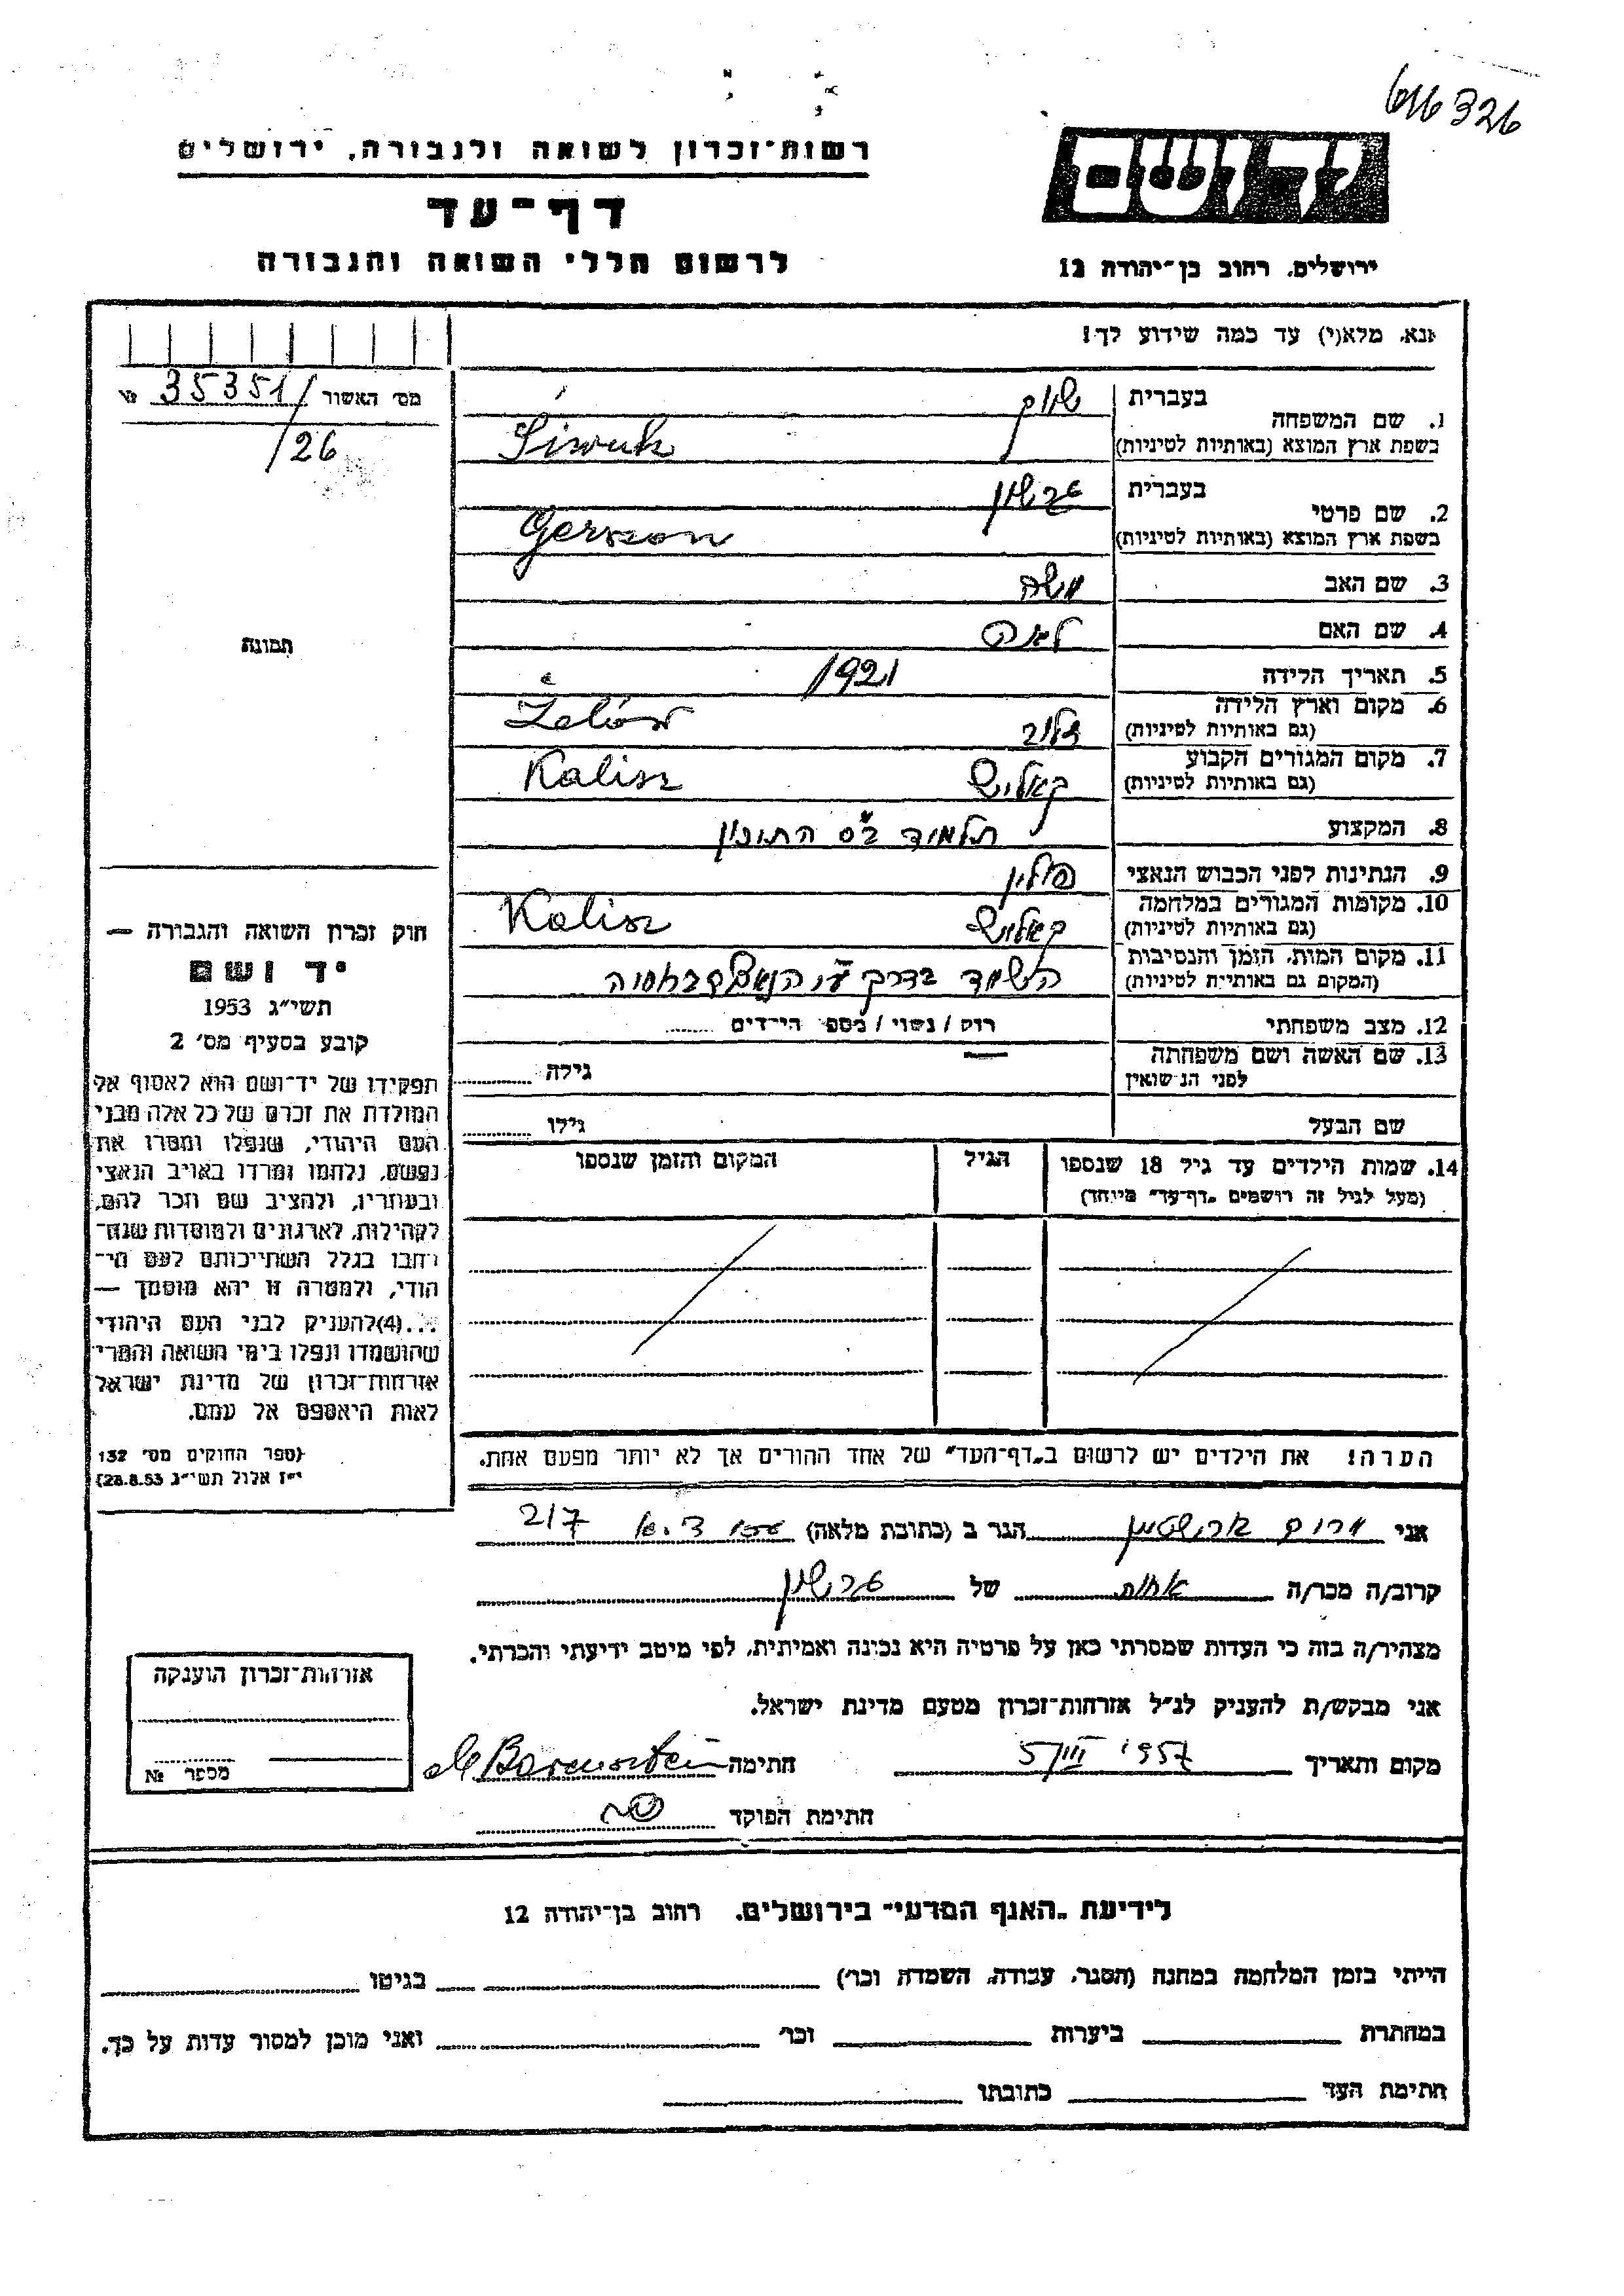 616326
רשות־זכרון לשואה ולגבורה, ירושלים
יד ושם
דף־עד
לרשום חללי השואה והגבורה
ירושלים, רחוב בן־יהודה 12
נא, מלא(י) עד כמה שידוע לך!
מס׳ האשור 35351/ №
/26
1. שם המשפחה
בעברית
בשפת ארץ המוצא (באותיות לטיניות)
Siwuk
2. שם פרטי
בעברית גרשון
בשפת ארץ המוצא (באותיות לטיניות) Gerszon
3. שם האב משה
4. שם האם לאה
5. תאריך הלידה 1921
6. מקום וארץ הלידה
(גם באותיות לטיניות) זלוב Zelów
7. מקום המגורים הקבוע
(גם באותיות לטיניות) קאליש Kalisz
8. המקצוע תלמיד ב״ס התיכון
9. הנתינות לפני הכבוש הנאצי פולין
10. מקומות המגורים במלחמה
(גם באותיות לטיניות) קאליש Kalisz
11. מקום המות, הזמן והנסיבות
(המקום גם באותיות לטיניות) הושמד בדרך ע״י הנאצים
12. מצב משפחתי רוק / נשוי / מספר הילדים ......
13. שם האשה ושם משפחתה
לפני הנישואין גילה
שם הבעל גילו
14. שמות הילדים עד גיל 18 שנספו הגיל המקום והזמן שנספו
(מעל לגיל זה רושמים „דף־עד״ מיוחד)
הערה! את הילדים יש לרשום ב„דף־העד״ של אחד ההורים אך לא יותר מפעם אחת.
תמונה
חוק זכרון השואה והגבורה —
יד ושם
תשי״ג 1953
קובע בסעיף מס׳ 2
תפקידו של יד־ושם הוא לאסוף אל
המולדת את זכרם של כל אלה מבני
העם היהודי, שנפלו ומסרו את
נפשם, נלחמו ומרדו באויב הנאצי
ובעוזריו, ולהציב שם וזכר להם,
לקהילות, לארגונים ולמוסדות שנח־
רבו בגלל השתייכותם לעם הי־
הודי, ולמטרה זו יהא מוסמך —
...(4)להעניק לבני העם היהודי
שהושמדו ונפלו בימי השואה והמרי
אזרחות־זכרון של מדינת ישראל
לאות היאספם אל עמם.
(ספר החוקים מס׳ 132
י״ז אלול תשי״ג 28.8.53)
אני הגר ב (כתובת מלאה) 217
קרוב/ה מכר/ה אחות של גרשון
מצהיר/ה בזה כי העדות שמסרתי כאן על פרטיה היא נכונה ואמיתית, לפי מיטב ידיעתי והכרתי.
אני מבקש/ת להעניק לנ״ל אזרחות־זכרון מטעם מדינת ישראל.
מקום ותאריך 1957 חתימה Borensztein
חתימת הפוקד
אזרחות־זכרון הוענקה
מספר №
לידיעת „האגף המדעי״ בירושלים, רחוב בן־יהודה 12
הייתי בזמן המלחמה במחנה (הסגר, עבודה, השמדה וכו׳) בגיטו
במחתרת ביערות וכו׳ ואני מוכן למסור עדות על כך.
חתימת העד כתובתו